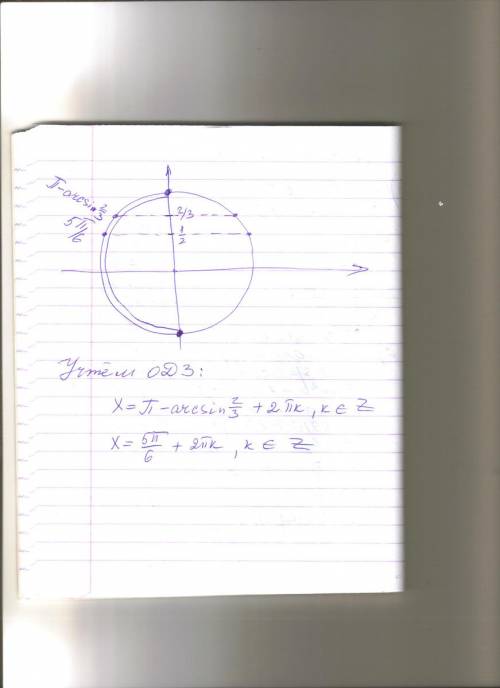 π-arcsin 2/3
5π/6
2/3
1/2
Учтём ОДЗ:
x = π - arcsin 2/3 + 2πk, k ∈ Z
x = 5π/6 + 2πk, k ∈ Z